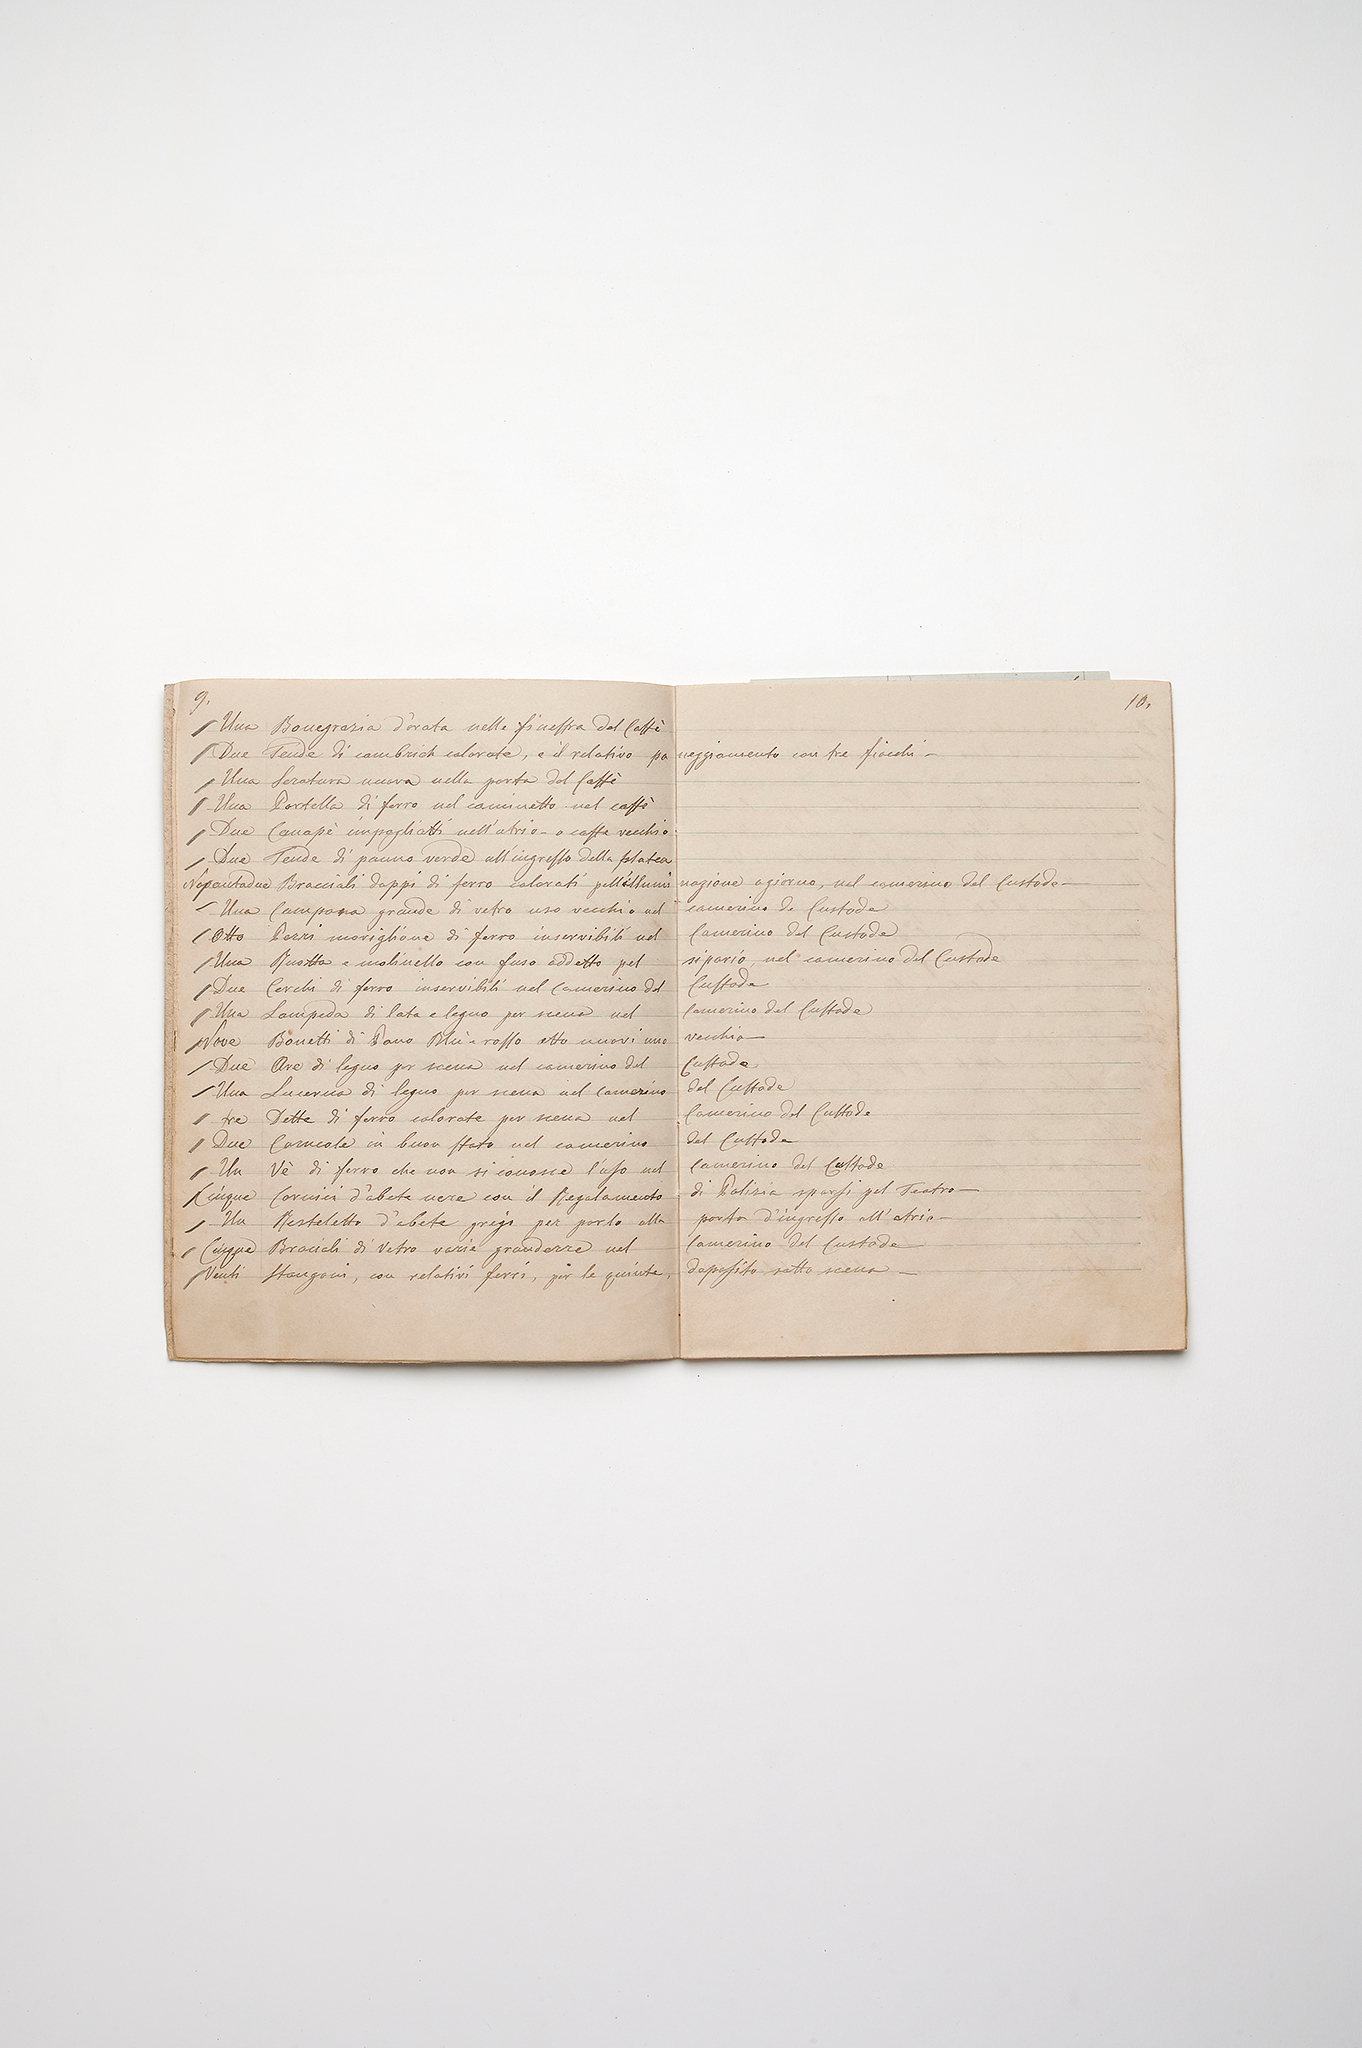 9.
10.
Una Bonegrazia d'orata nelle finestra del Caffè
Due Tende di cambrich colorate, e il relativo paneggiamento con tre fiocchi
Una Seratura nuova nella porta del Caffè
Una Portella di ferro nel caminetto nel caffè
Due Canapè impagliatti nell'atrio o caffe vecchio
Due Tende di panno verde all'ingresso della platea
Novantadue Bracciali doppi di ferro colorati pell'illuminazione agiorno, nel camerino del Custode
Una Campana grande di vetro uso vecchio nel camerino de Custode
Otto Pezzi moriglione di ferro inservibili nel Camerino del Custode
Una Ruotta e molinello con fuso addetto pel sipario, nel camerino del Custode
Due Cerchi di ferro inservibili nel Camerino del Custode
Una Lampeda di lata e legno per scena nel Camerino del Custode
Nove Bonetti di Pano Blù e rosso otto nuovi uno vecchio
Due Are di legno per scena nel camerino del Custode
Una Lucerna di legno per scena nel camerino del Custode
tre Dette di ferro colorate per scena nel Camerino del Custode
Due Carucole in buon stato nel camerino del Custode
Un Vè di ferro che non si conosce l'uso nel Camerino del Custode
Cinque Cornici d'abete nere con il Regolamento di Polizia sparsi pel Teatro
Un Resteletto d'abete grigio per porlo alla porta d'ingresso all'atrio
Cinque Braciali di Vetro varie grandezze nel Camerino del Custode
Venti Stangoni, con relativi ferri, per le quinte, deposito sotto scena